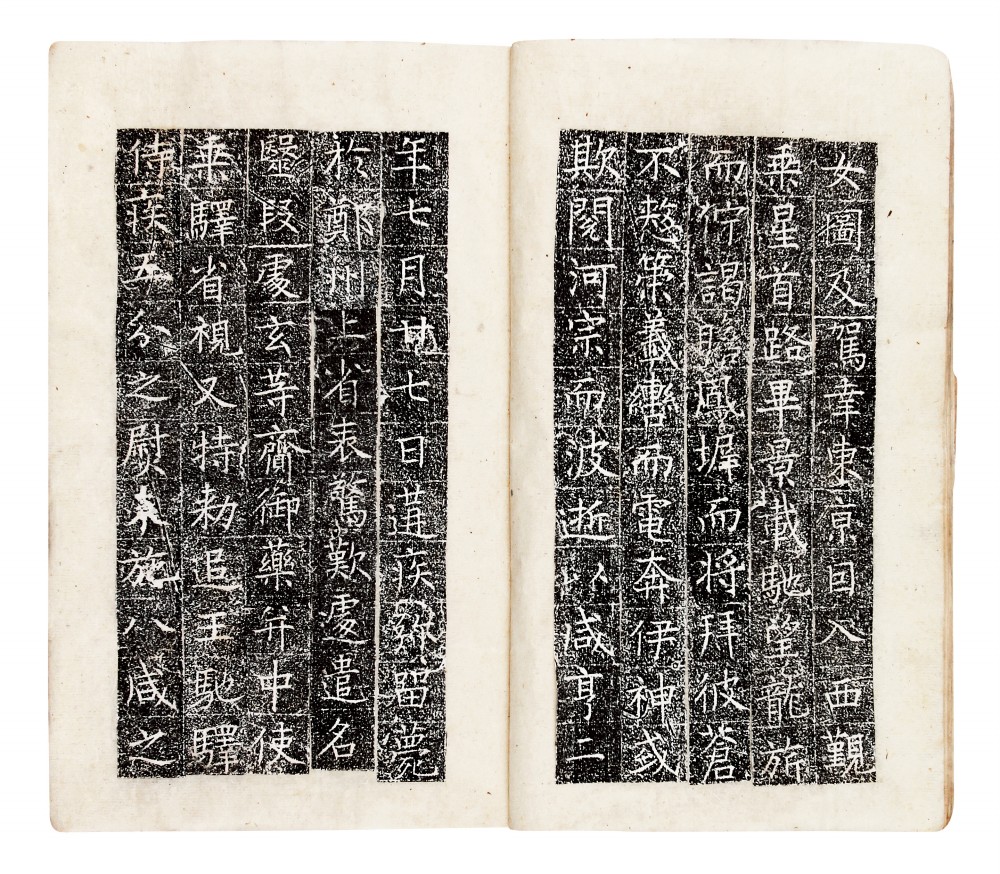 女圖及駕幸東京囙入西覲
乘星首路畢景載馳望龍斾
而佇謁瞻鳳墀而將拜彼蒼
不憗策羲轡而電奔伊神或
欺閱河宗而波逝以咸亨二
年七月廿七日遘疾弥留薨
於鄭州上省表驚歎遽遣名
醫段處玄等齎御藥并中使
乘驛省視又特勅追王馳驛
侍疾五分之慰未施八咸之